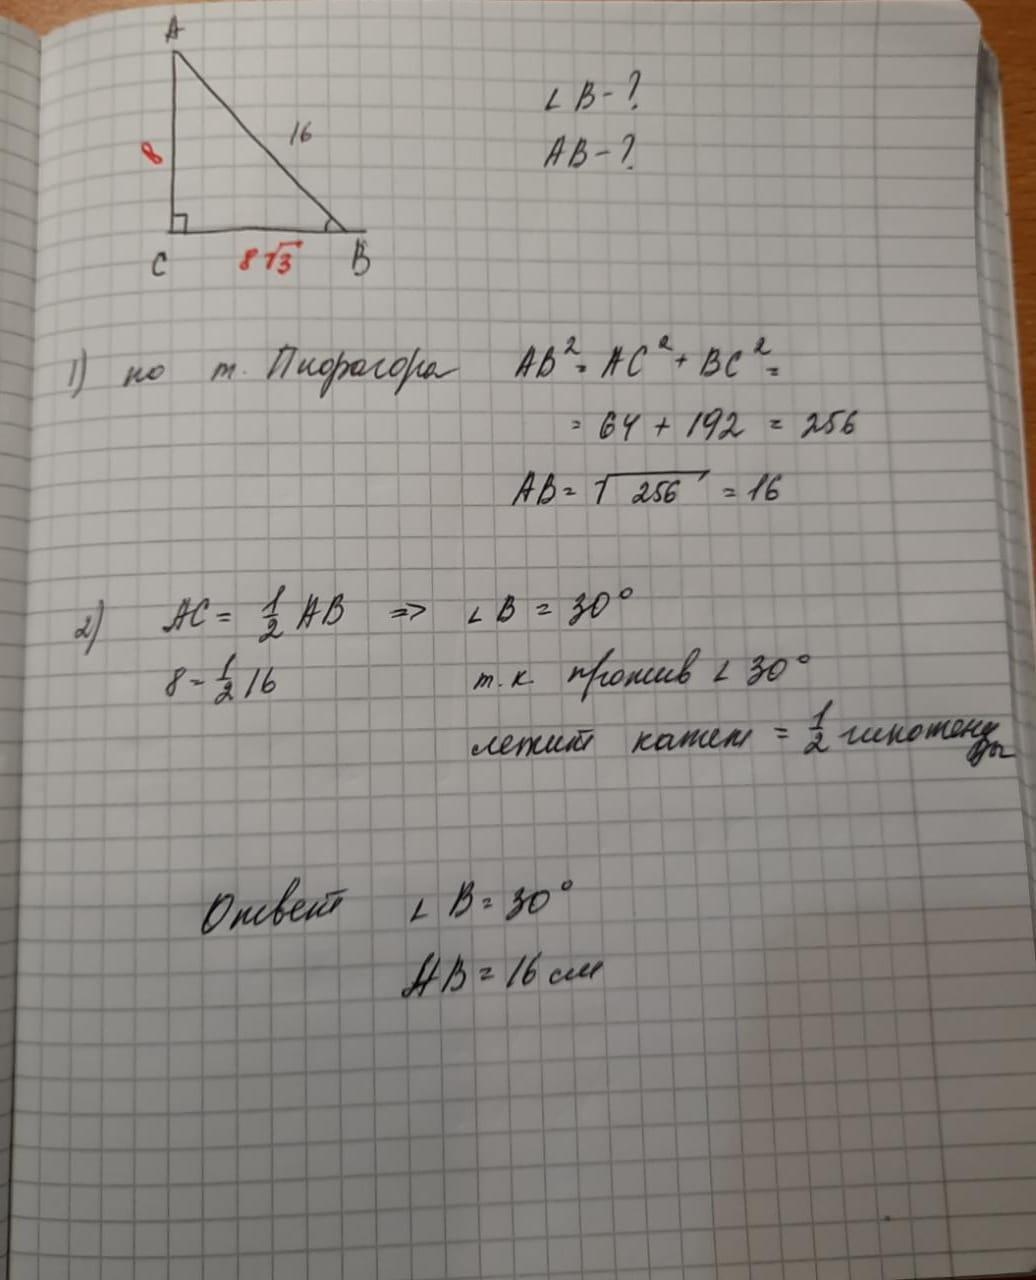 A
16
8
C
8√3
B
∠ B - ?
AB - ?
1) по т. Пифагора AB² = AC² + BC² =
= 64 + 192 = 256
AB = √256 = 16
2) AC = 1/2 AB => ∠ B = 30°
8 = 1/2 16 т.к. против ∠ 30°
лежит катет = 1/2 гипотенузы
Ответ ∠ B = 30°
AB = 16 см